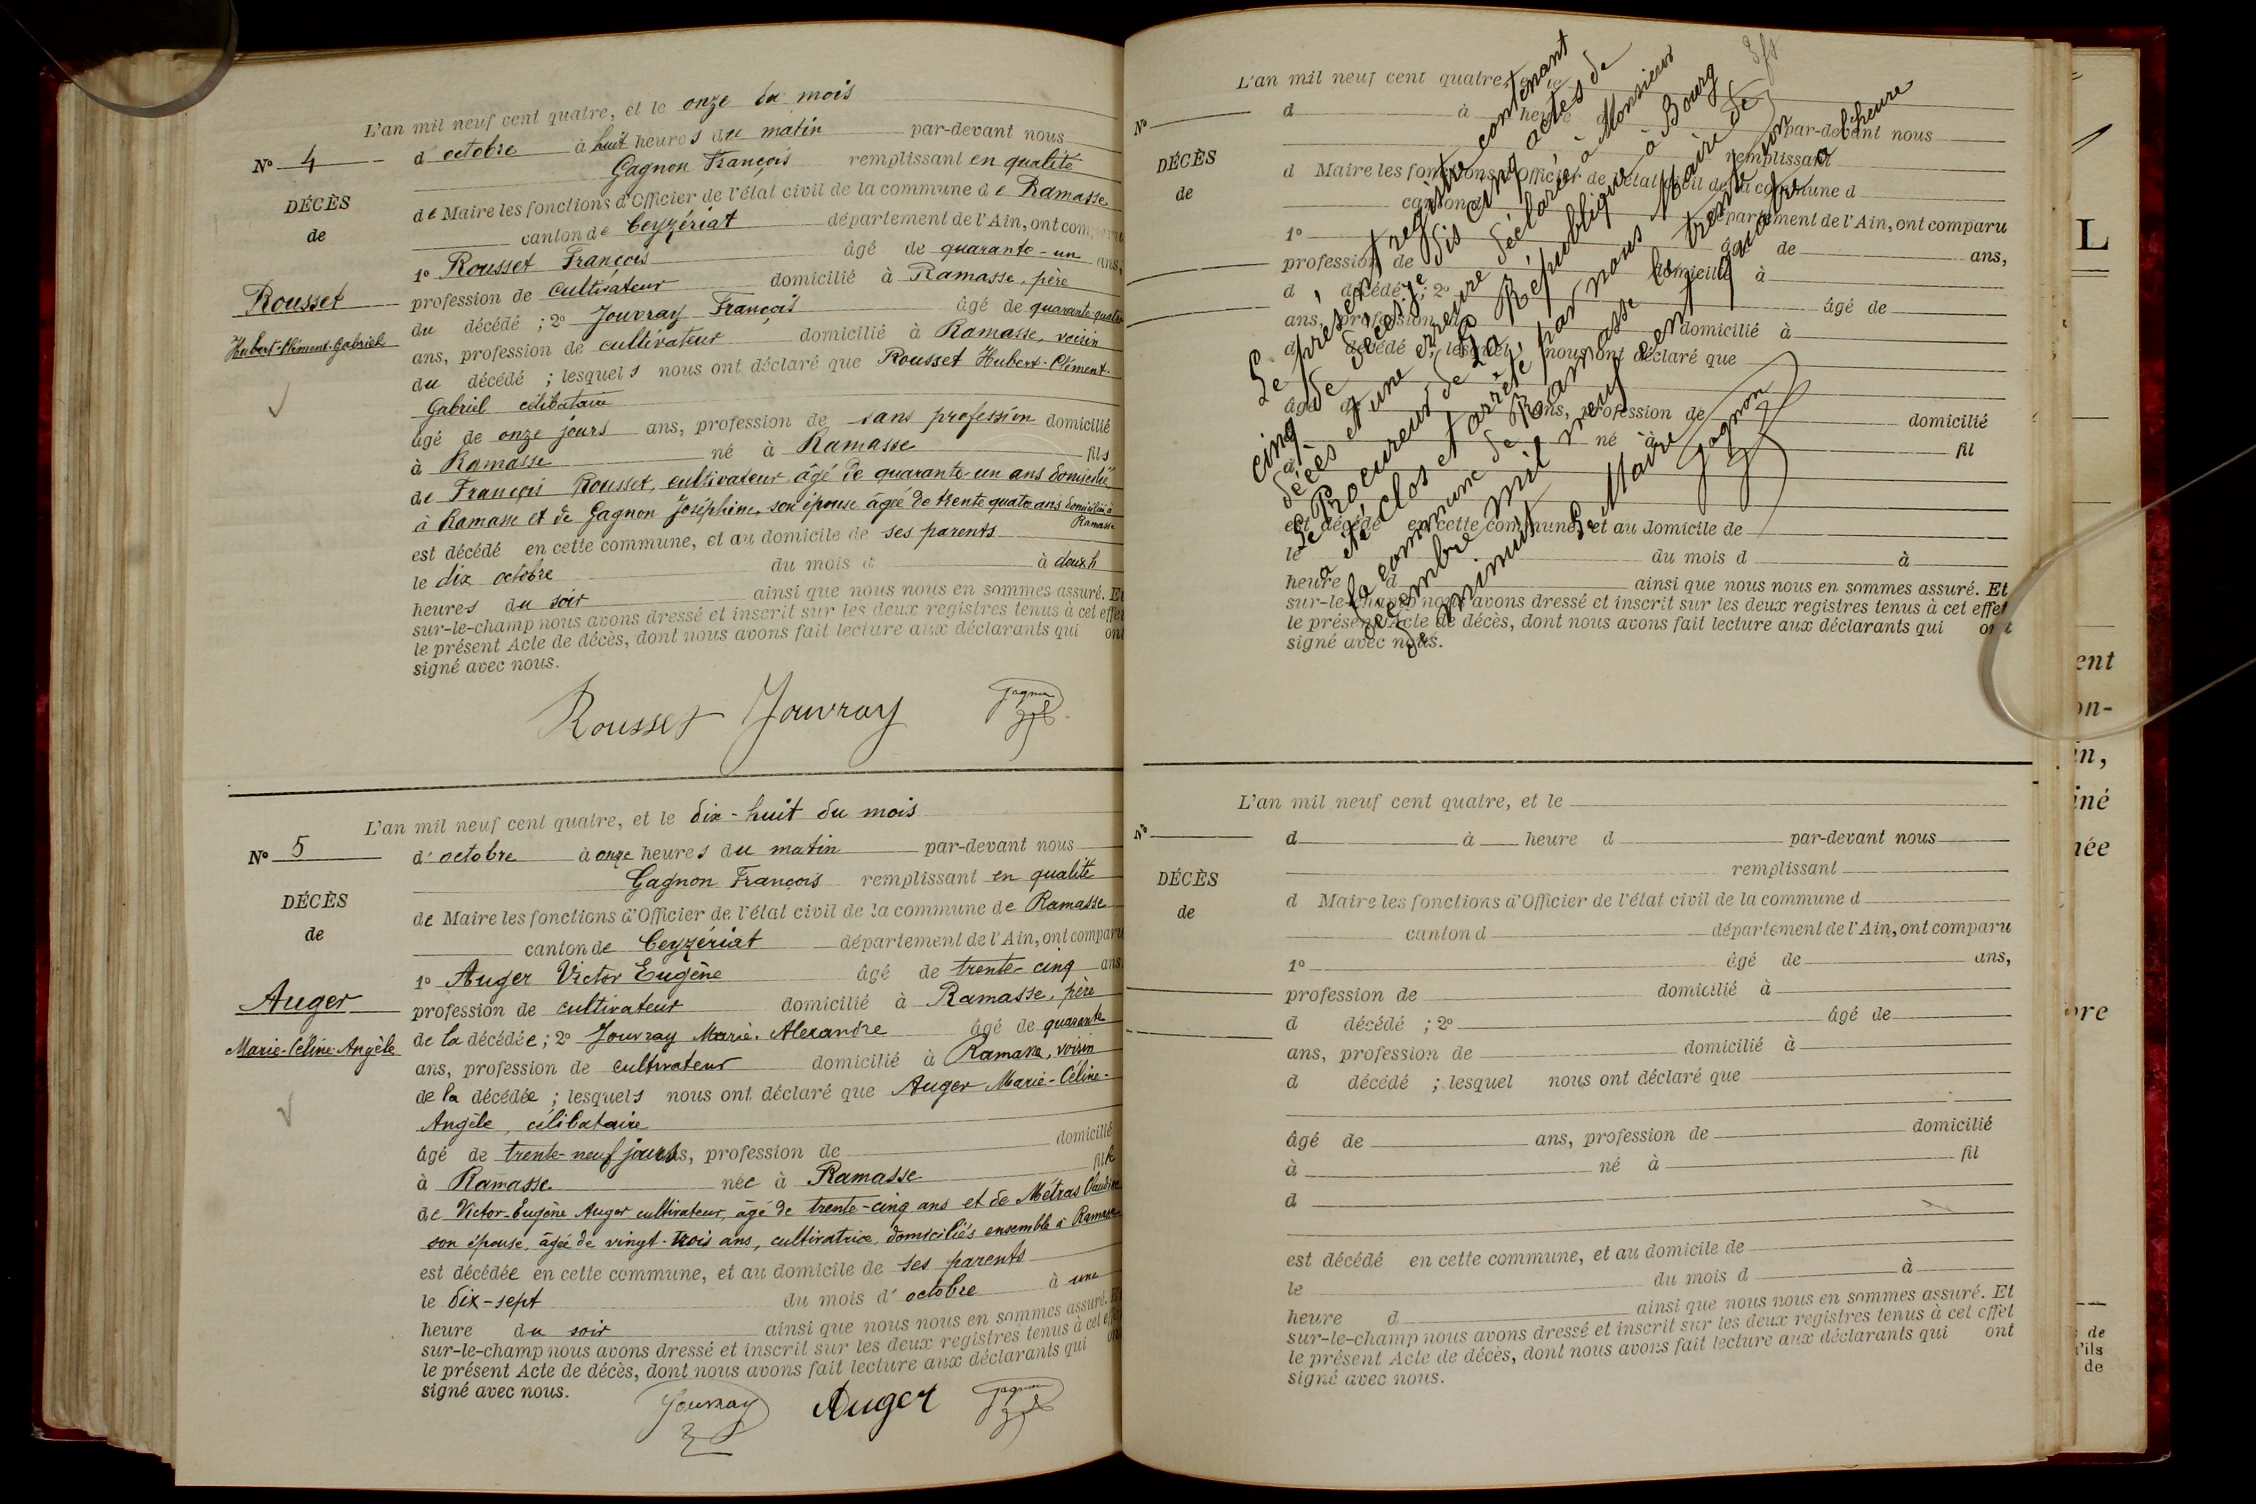 L'an mil neuf cent quatre, et le onze du mois
N° 4
d'octobre à huit heures du matin par-devant nous
Gagnon François remplissant en qualité
DÉCÈS
de Maire les fonctions d'Officier de l'état civil de la commune de Ramasse
de
canton de Ceyzériat département de l'Ain, ont comparu
1° Rousset François âgé de quarante-un ans,
Rousset
profession de cultivateur domicilié à Ramasse, père
du décédé ; 2° Jouvray François âgé de quarante quatre
Hubert-Clément-Gabriel
ans, profession de cultivateur domicilié à Ramasse, voisin
du décédé ; lesquels nous ont déclaré que Rousset Hubert-Clément-
Gabriel célibataire
âgé de onze jours ans, profession de sans profession domicilié
à Ramasse né à Ramasse fils
de François Rousset, cultivateur âgé de quarante-un ans domicilié
à Ramasse et de Gagnon Joséphine, son épouse âgée de trente quatre ans domiciliée à
Ramasse
est décédé en cette commune, et au domicile de ses parents
le dix octobre du mois d à deux h
heures du soir ainsi que nous nous en sommes assuré. Et
sur-le-champ nous avons dressé et inscrit sur les deux registres tenus à cet effet
le présent Acte de décès, dont nous avons fait lecture aux déclarants qui ont
signé avec nous.
Rousset Jouvray Gagnon
L'an mil neuf cent quatre, et le dix-huit du mois
N° 5
d'octobre à onze heures du matin par-devant nous
Gagnon François remplissant en qualité
DÉCÈS
de Maire les fonctions d'Officier de l'état civil de la commune de Ramasse
de
canton de Ceyzériat département de l'Ain, ont comparu
1° Auger Victor Eugène âgé de trente-cinq ans
Auger
profession de cultivateur domicilié à Ramasse, père
de la décédée ; 2° Jouvray Marie-Alexandre âgé de quarante
Marie-Céline-Angèle
ans, profession de cultivateur domicilié à Ramasse, voisin
de la décédée ; lesquels nous ont déclaré que Auger Marie-Céline-
Angèle, célibataire
âgé de trente-neuf jours, profession de domicilié
à Ramasse née à Ramasse fille
de Victor-Eugène Auger cultivateur, âgé de trente-cinq ans et de Métras Claudine
son épouse, âgée de vingt-trois ans, cultivatrice, domiciliés ensemble à Ramasse
est décédée en cette commune, et au domicile de ses parents
le dix-sept du mois d'octobre à une
heure du soir ainsi que nous nous en sommes assuré. Et
sur-le-champ nous avons dressé et inscrit sur les deux registres tenus à cet effet
le présent Acte de décès, dont nous avons fait lecture aux déclarants qui ont
signé avec nous.
Jouvray Auger Gagnon
L'an mil neuf cent quatre,
N°
d à heure par-devant nous
remplissant
DÉCÈS
d Maire les fonctions d'Officier de l'état civil de la commune d
de
canton d département de l'Ain, ont comparu
1° âgé de ans,
profession de domicilié à
d décédé ; 2° âgé de
ans, profession de domicilié à
d décédé ; lesquel nous ont déclaré que
âgé de ans, profession de domicilié
à né à fil
d
est décédé en cette commune, et au domicile de
le du mois d à
heure d ainsi que nous nous en sommes assuré. Et
sur-le-champ nous avons dressé et inscrit sur les deux registres tenus à cet effet
le présent Acte de décès, dont nous avons fait lecture aux déclarants qui ont
signé avec nous.
Le présent registre contenant
cinq de décès je dis cinq actes de
décès et une erreure déclarée à Monsieur
Le Procureur de la République à Bourg
a été clos et arrêté par nous Maire de
la commune de Ramasse le trente un
décembre mil neuf cent quatre à l'heure
de minuit
Le Maire
Gagnon
L'an mil neuf cent quatre, et le
N°
d à heure d par-devant nous
remplissant
DÉCÈS
d Maire les fonctions d'Officier de l'état civil de la commune d
de
canton d département de l'Ain, ont comparu
1° âgé de ans,
profession de domicilié à
d décédé ; 2° âgé de
ans, profession de domicilié à
d décédé ; lesquel nous ont déclaré que
âgé de ans, profession de domicilié
à né à fil
d
est décédé en cette commune, et au domicile de
le du mois d à
heure d ainsi que nous nous en sommes assuré. Et
sur-le-champ nous avons dressé et inscrit sur les deux registres tenus à cet effet
le présent Acte de décès, dont nous avons fait lecture aux déclarants qui ont
signé avec nous.
L
ent
on-
in,
iné
née
bre
de
'ils
de